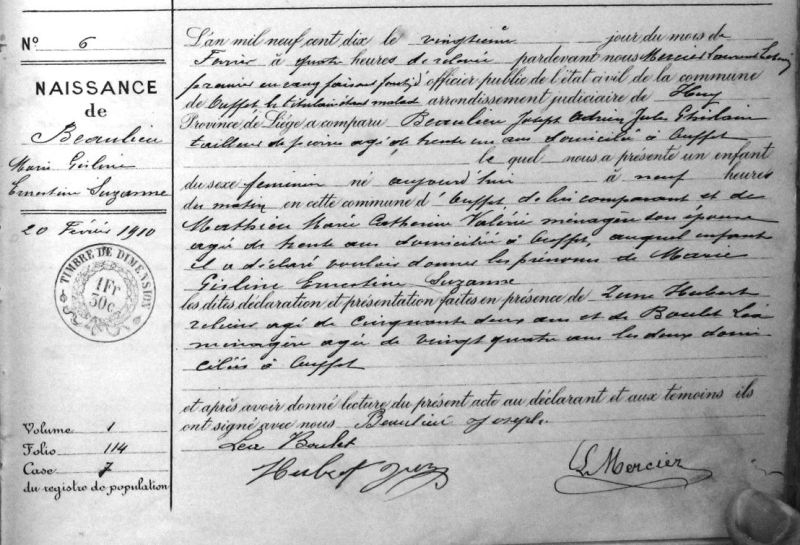 N° 6
NAISSANCE
de
Beaulieu
Marie Gisline
Ernestine Suzanne
20 Février 1910
TIMBRE DE DIMENSION
1Fr
50c
Volume 1
Folio 114
Case 7
du registre de population
L'an mil neuf cent dix le vingtième jour du mois de
Fevrier à quatre heures de relevée pardevant nous Mercier Laurent
officier public de l'état civil de la commune
de Ouffet le titulaire étant malade arrondissement judiciaire de Huy
Province de Liége a comparu Beaulieu Joseph Adrien Jules Ghislain
tailleur de pierres agé de trente un ans domicilié à Ouffet
le quel nous a présenté un enfant
du sexe feminin né aujourd'hui à neuf heures
du matin en cette commune d'Ouffet de lui comparant et de
Mathieu Marie Catherine Valérie ménagère son épouse
agée de trente ans domiciliée à Ouffet, auquel enfant
il a déclaré vouloir donner les prénoms de Marie
Gisline Ernestine Suzanne
les dites déclaration et présentation faites en présence de Hubert
agé de cinquante deux ans et de Boulet Léa
ménagère agée de vingt quatre ans les deux domi
ciliés à Ouffet
et après avoir donné lecture du présent acte au déclarant et aux témoins ils
ont signé avec nous Beaulieu Joseph
Lea Boulet
Hubert
L. Mercier